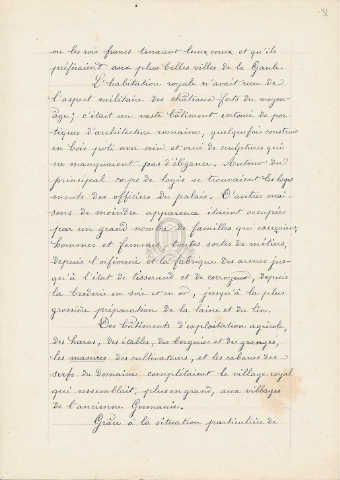 où les rois francs tenaient leurs cours et qu'ils
préféraient aux plus belles villes de la Gaule.
L'habitation royale n'avait rien de
l'aspect militaire des châteaux forts du moyen-
âge; c'était un vaste bâtiment entouré de por-
tiques d'architecture romaine, quelquefois construit
en bois poli avec soin et orné de sculptures qui
ne manquaient pas d'élégance. Autour du
principal corps de logis se trouvaient les loge-
ments des officiers du palais. D'autres mai-
sons de moindre apparence étaient occupées
par un grand nombre de familles qui exerçaient,
hommes et femmes, toutes sortes de métiers,
depuis l'orfèvrerie et la fabrique des armes jus-
qu'à l'état de tisserand et de corroyeur, depuis
la broderie en soie et en or, jusqu'à la plus
grossière préparation de la laine et du lin.
Des bâtiments d'exploitation agricole,
des haras, des étables, des bergeries et des granges,
les masures des cultivateurs, et les cabanes des
serfs du domaine complétaient le village royal
qui ressemblait, plus en grand, aux villages
de l'ancienne Germanie.
Grâce à la situation particulière de